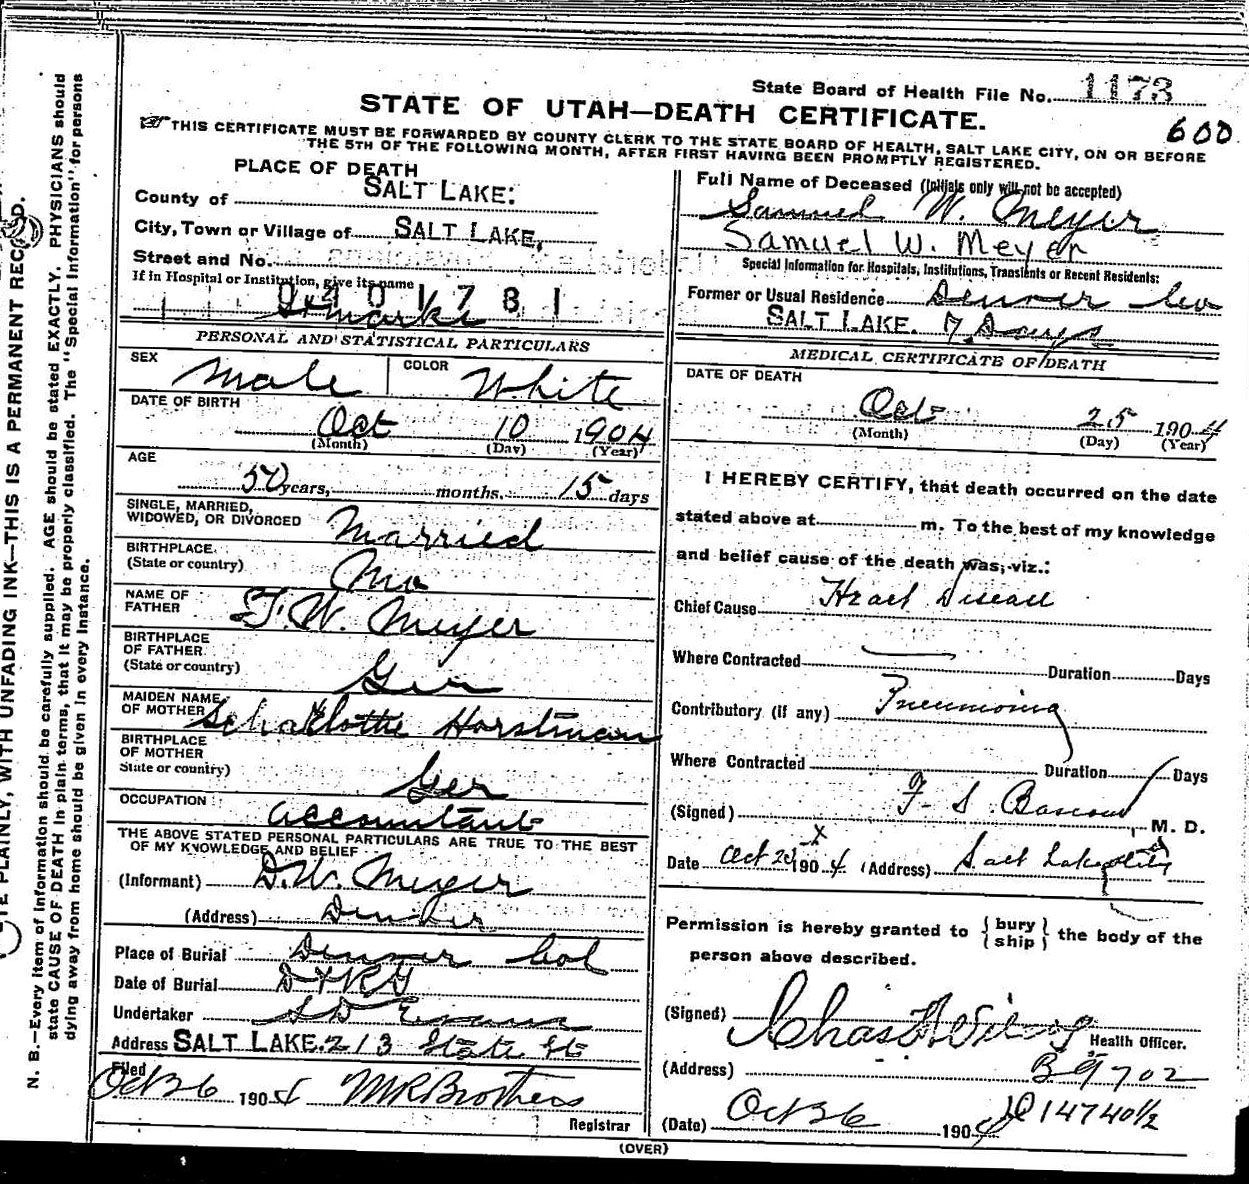 State Board of Health File No. 1173
STATE OF UTAH—DEATH CERTIFICATE.
600
THIS CERTIFICATE MUST BE FORWARDED BY COUNTY CLERK TO THE STATE BOARD OF HEALTH, SALT LAKE CITY, ON OR BEFORE
THE 5TH OF THE FOLLOWING MONTH, AFTER FIRST HAVING BEEN PROMPTLY REGISTERED.
PLACE OF DEATH
County of SALT LAKE:
City, Town or Village of SALT LAKE,
Street and No.
If in Hospital or Institution, give its name
0401781
St marks
PERSONAL AND STATISTICAL PARTICULARS
SEX Male COLOR White
DATE OF BIRTH Oct 10 1904
(Month) (Day) (Year)
AGE
50 years, months, 15 days
SINGLE, MARRIED,
WIDOWED, OR DIVORCED Married
BIRTHPLACE
(State or country) Mo
NAME OF
FATHER F. W. Meyer
BIRTHPLACE
OF FATHER
(State or country) Ger
MAIDEN NAME
OF MOTHER Scharlotte Horstman
BIRTHPLACE
OF MOTHER
State or country) Ger
OCCUPATION accountant
THE ABOVE STATED PERSONAL PARTICULARS ARE TRUE TO THE BEST
OF MY KNOWLEDGE AND BELIEF
(Informant) D. W. Meyer
(Address) Denver
Place of Burial Denver Col
Date of Burial D & RG
Undertaker S D Evans
Address SALT LAKE. 213 State St
Filed
Oct 26 1904 M R Brothers
Registrar
Full Name of Deceased (Initials only will not be accepted)
Samuel W. Meyer
Samuel W. Meyer
Special Information for Hospitals, Institutions, Transients or Recent Residents:
Former or Usual Residence Denver Col
SALT LAKE. 7 Days
MEDICAL CERTIFICATE OF DEATH
DATE OF DEATH
Oct 25 1904
(Month) (Day) (Year)
I HEREBY CERTIFY, that death occurred on the date
stated above at m. To the best of my knowledge
and belief cause of the death was, viz.:
Chief Cause Heart Disease
Where Contracted Duration Days
Contributory (if any) Pneumonia
Where Contracted Duration Days
(Signed) F. S. Bascom M. D.
Date Oct 1904 (Address) Salt Lake City
Permission is hereby granted to { bury ship } the body of the
person above described.
(Signed) Chas
Health Officer.
(Address) B 9702
(Date) Oct 26 1904 D 14740½
(OVER)
N. B.—Every item of information should be carefully supplied. AGE should be stated EXACTLY. PHYSICIANS should
state CAUSE OF DEATH in plain terms, that it may be properly classified. The "Special Information" for persons
dying away from home should be given in every instance.
PLAINLY, WITH UNFADING INK—THIS IS A PERMANENT RECORD.